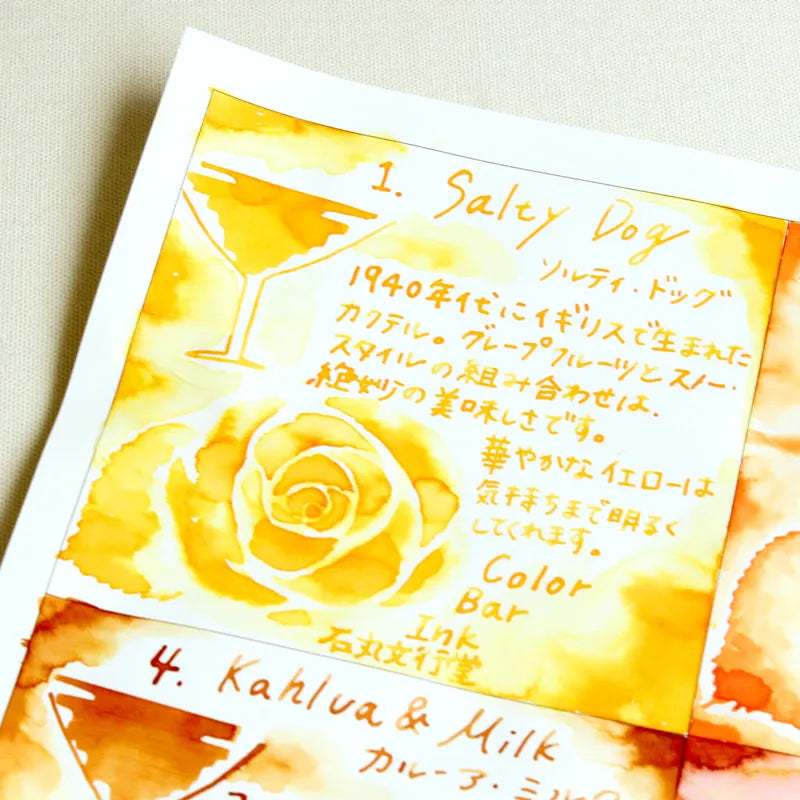 1. Salty Dog
ソルティ・ドッグ
1940年代にイギリスで生まれた
カクテル。グレープフルーツとスノー・
スタイルの組み合わせは、
絶妙の美味しさです。
華やかなイエローは
気持ちまで明るく
してくれます。
Color
Bar
Ink
石丸文行堂
4. Kahlua & Milk
カルーア・ミルク